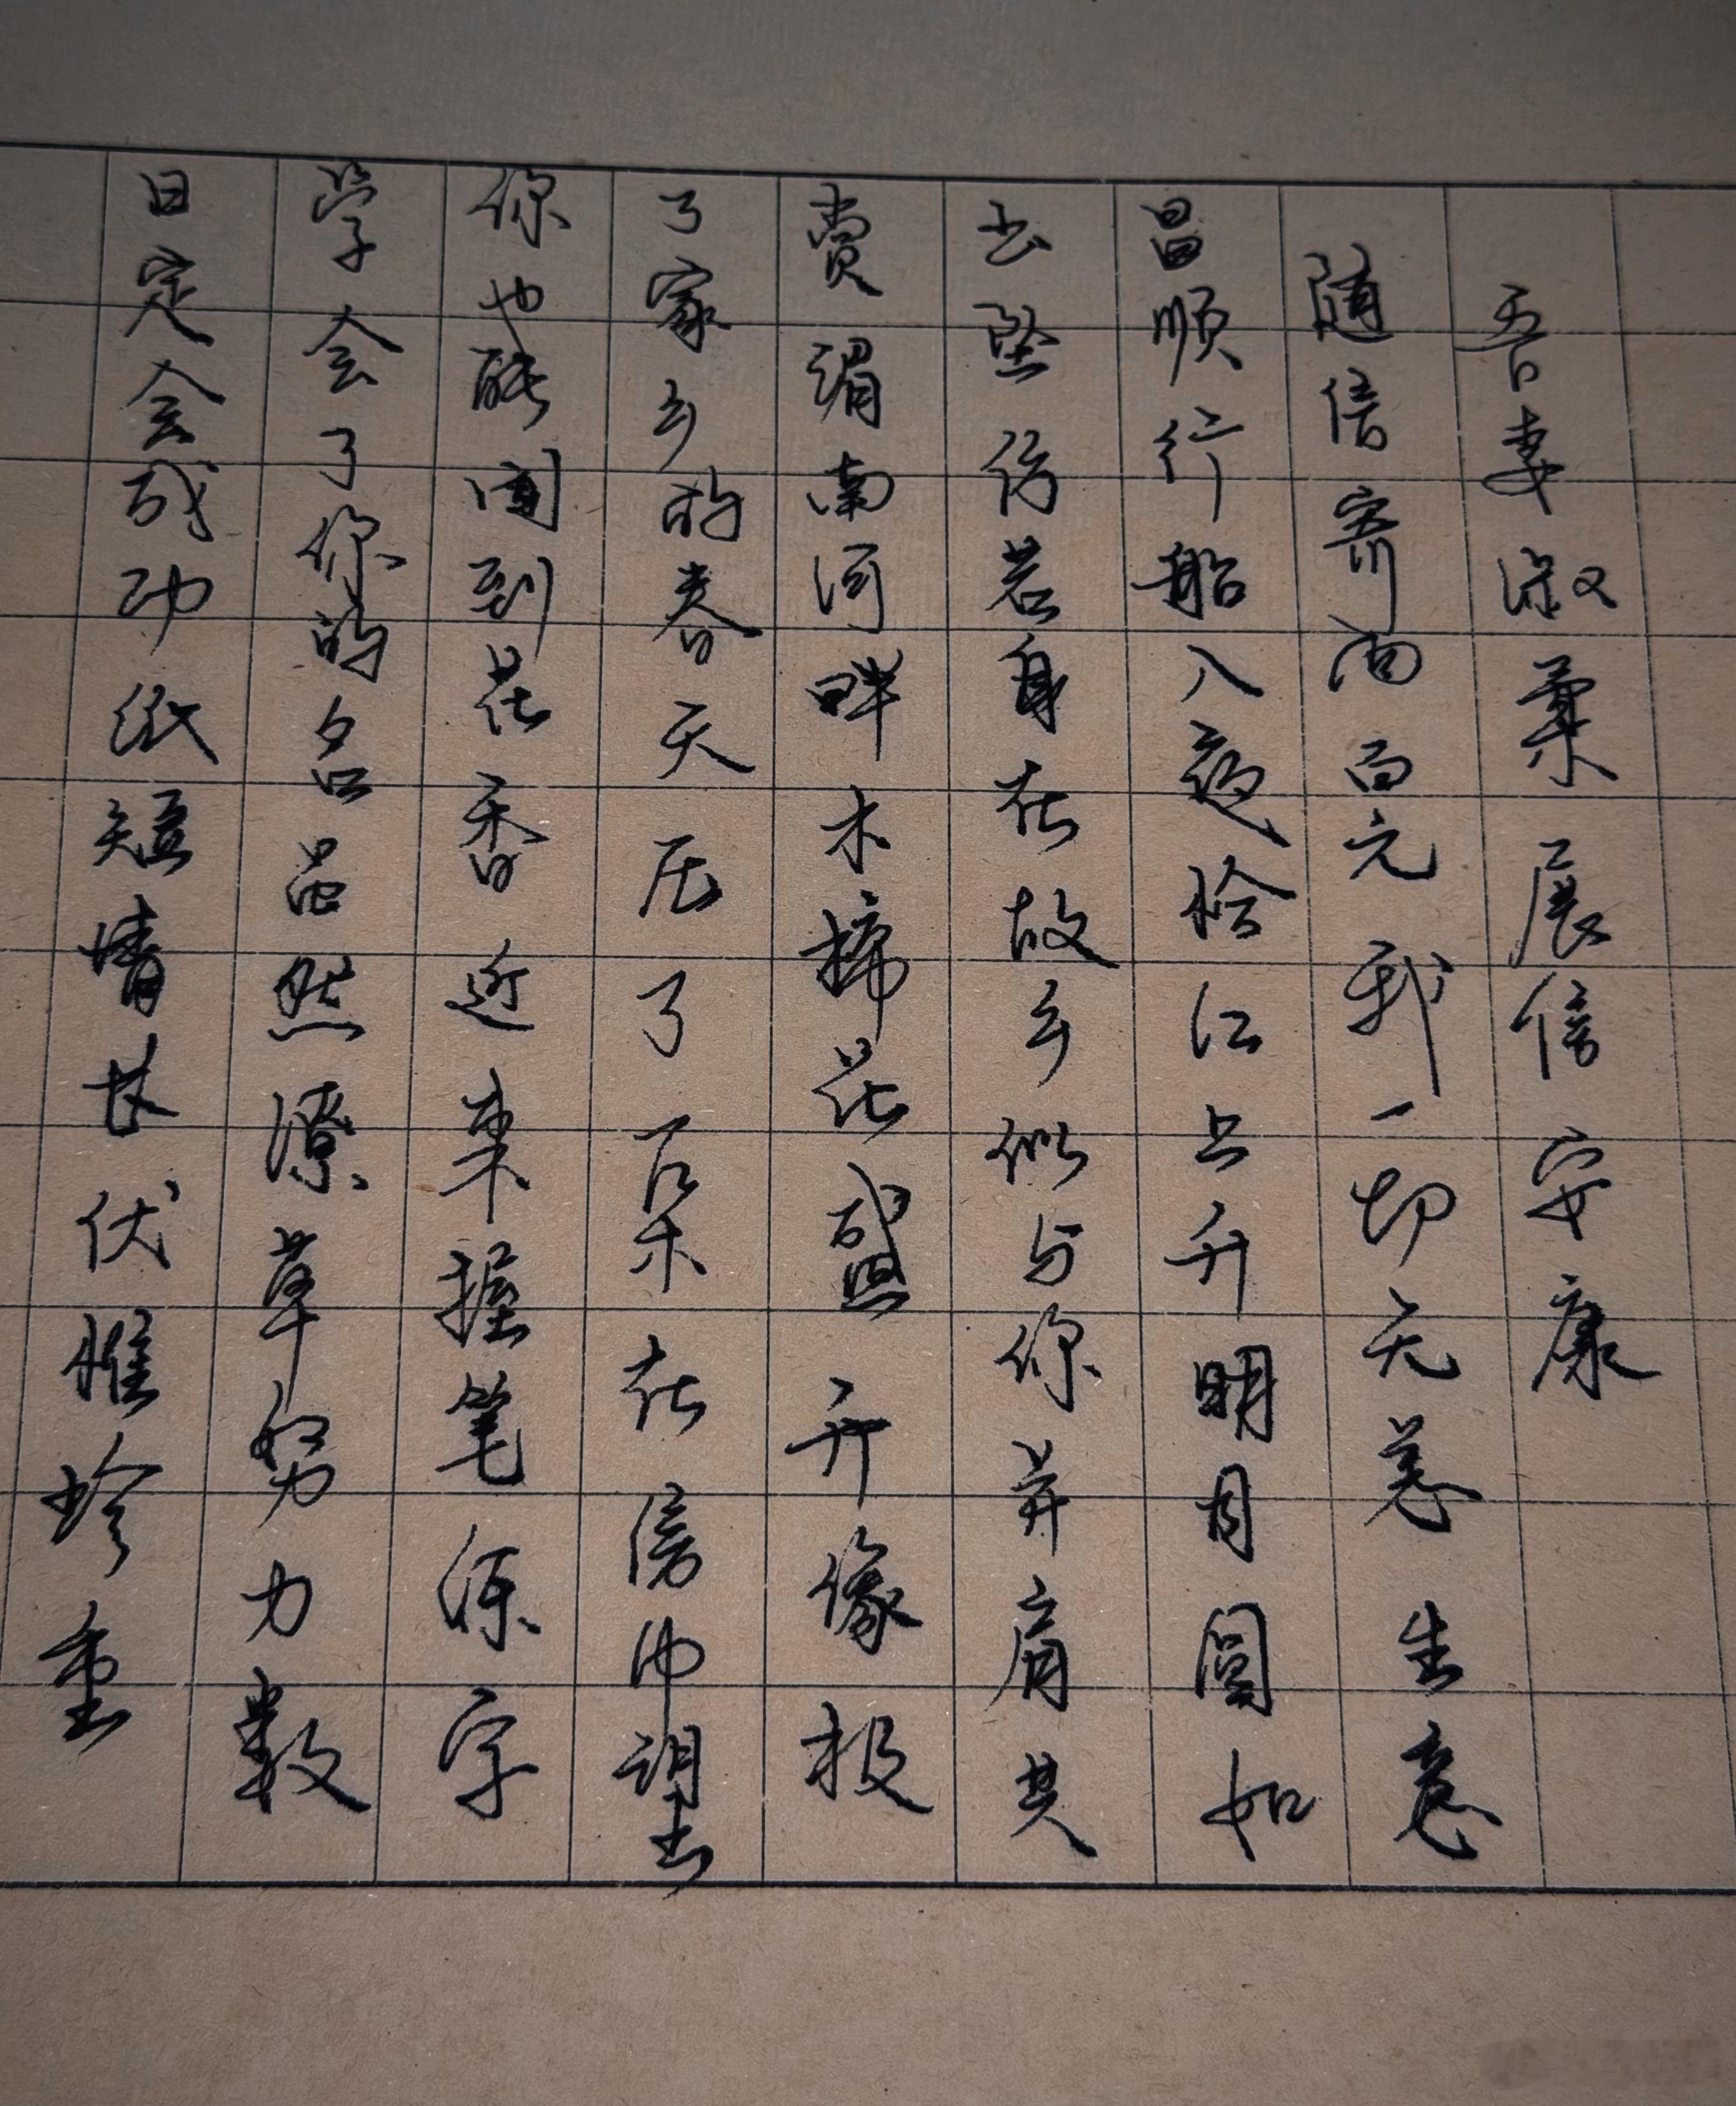 吾妻淑柔展信安康
随信寄两百元我一切无恙生意
昌顺行船入夜恰江上升明月圆如
玉坠仿若身在故乡似与你并肩共
赏渭南河畔木棉花盛开像极
了家乡的春天压了一朵在信中望
你也能闻到花香近来握笔练字
学会了你的名虽然潦草努力数
日定会成功纸短情长伏惟珍重